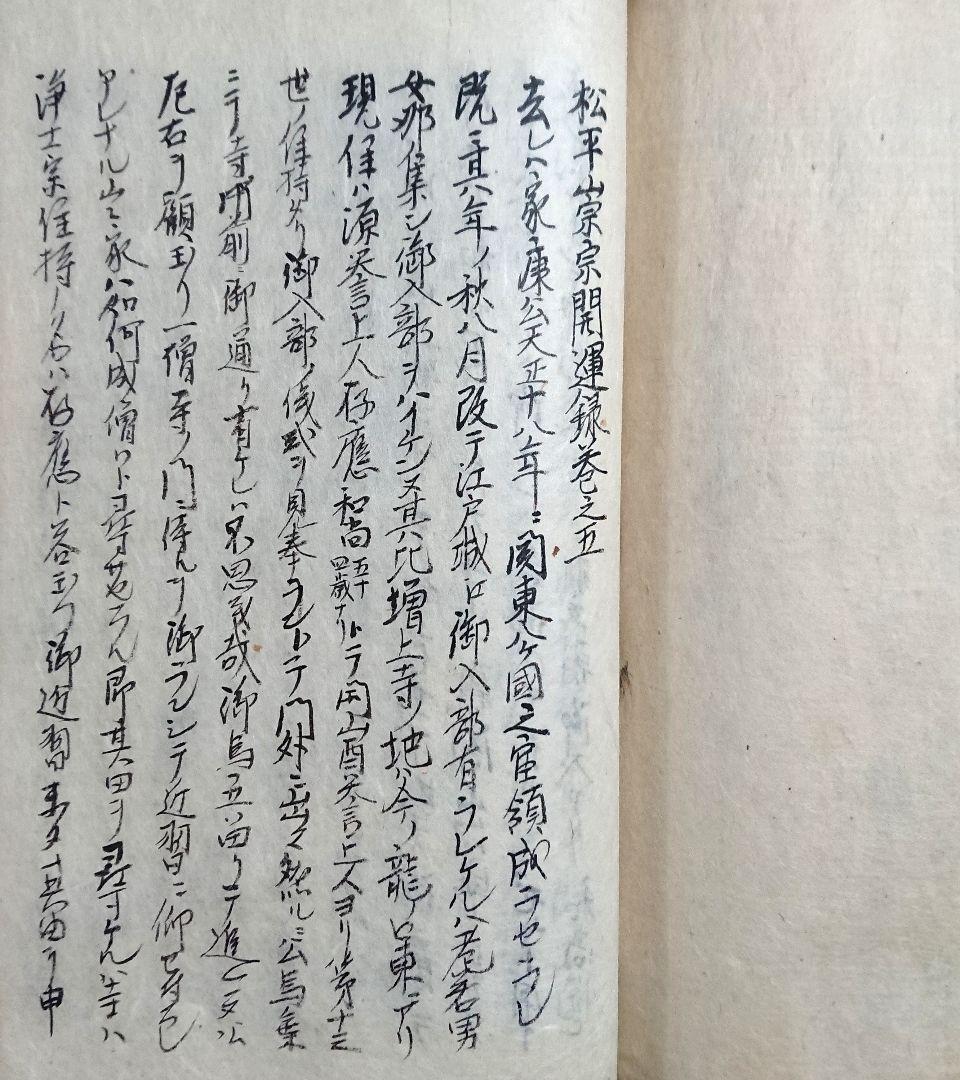 松平崇宗開運録巻之五
去レハ家康公天正十八年ニ関東八ケ國之官領成ラセ玉
既ニ其八年ノ秋八月改テ江戸城江御入部有ラレケルハ老若男
女郡集シ御入部ヲハイケン又其比増上寺ノ地ハ今ノ龍ノ口東ニアリ
現住ハ源誉上人存應和尚五十四歳ナリトテ開山酉誉上人ヨリ第十二
世ノ住持ナリ御入部ノ儀式ヲ見奉ラントテ門外ニ出ク然ルニ公馬乗
ニテ寺門前ニ御通リ有ケレハ不思議哉御馬五ハ田リニテ進レタハ
左右ヲ顧玉リ一僧寺ノ門ニ侍ルヲ御ランシテ近習ニ仰セ
アレナル山ニ家ハ如何成僧ロト尋サセラル即其由ヲ尋ケルハ寺ハ
浄土宗住持ノ名ハ存應ト答玉フ御近習来タ其由ヲ申